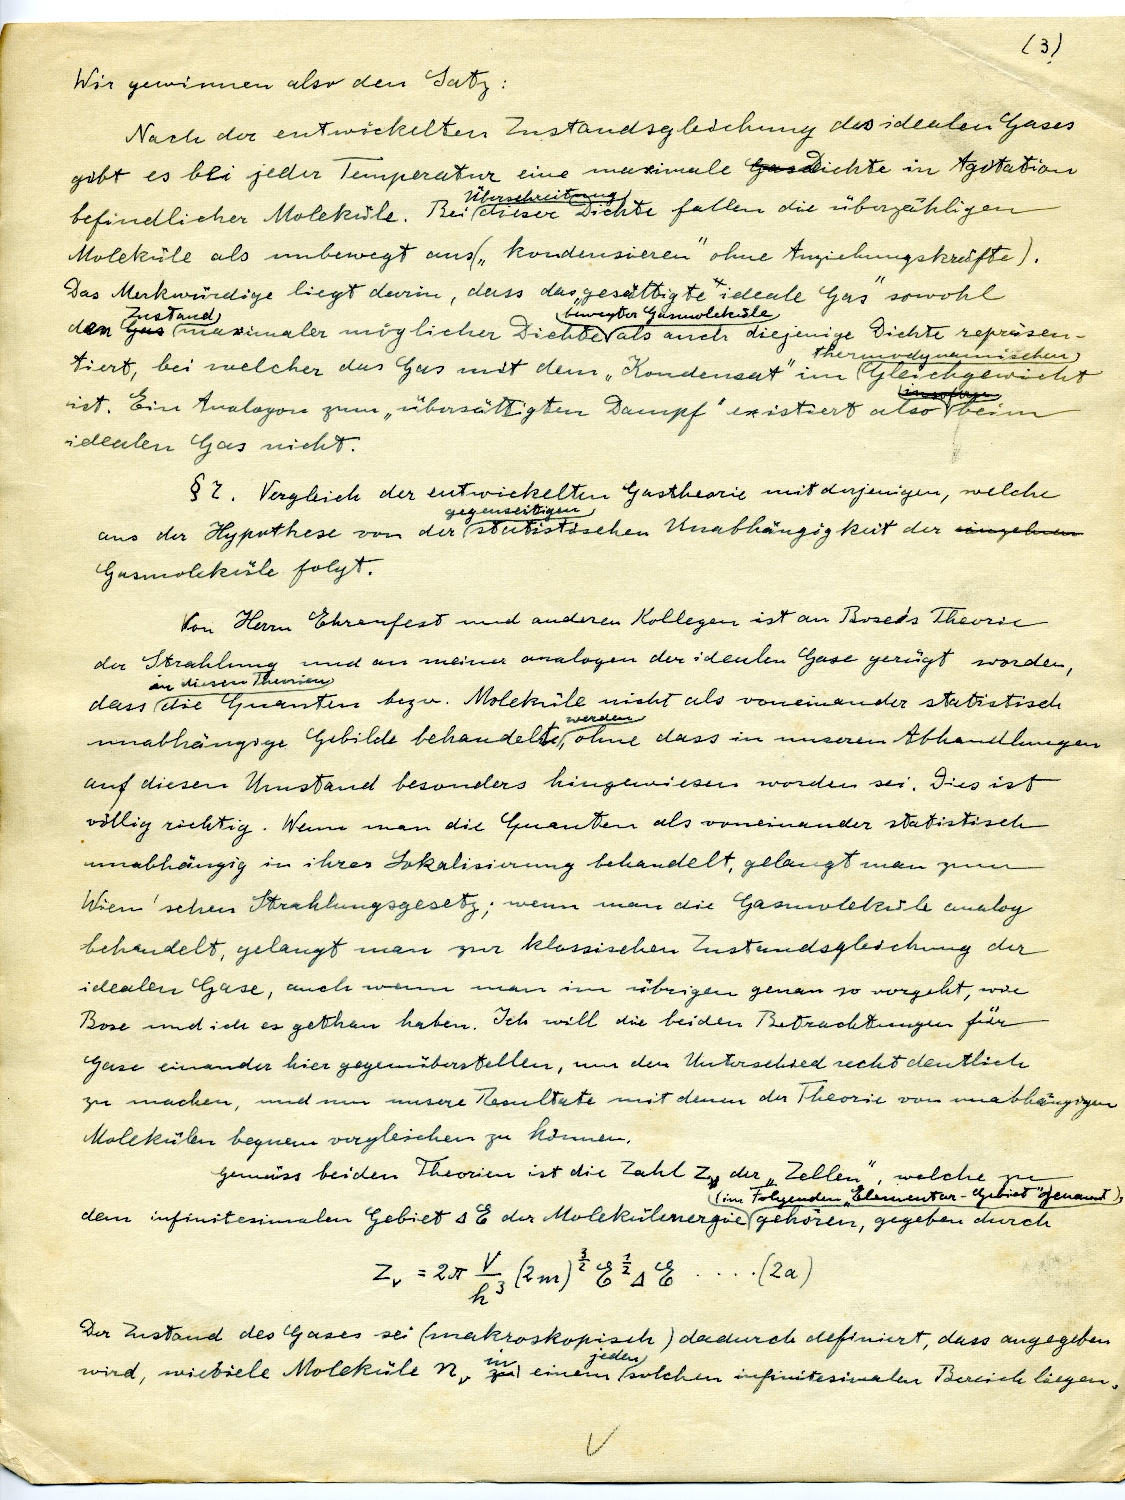 (3)
Wir gewinnen also den Satz:
Nach der entwickelten Zustandsgleichung des idealen Gases
gibt es bei jeder Temperatur eine maximale Gas Dichte in Agitation
Überschreitung
befindlicher Moleküle. Bei dieser Dichte fallen die überzähligen
Moleküle als unbewegt aus („kondensieren" ohne Anziehungskräfte).
Das Merkwürdige liegt darin, dass das „gesättigte ideale Gas" sowohl
Zustand bewegter Gasmoleküle
den Gas maximaler möglicher Dichte als auch diejenige Dichte repräsen-
thermodynamischen
tiert, bei welcher das Gas mit dem „Kondensat" im Gleichgewicht
insofern
ist. Ein Analogon zum „übersättigten Dampf" existiert also beim
idealen Gas nicht.
§ 7. Vergleich der entwickelten Gastheorie mit derjenigen, welche
gegenseitigen
aus der Hypothese von der statistischen Unabhängigkeit der einzelnen
Gasmoleküle folgt.
Von Herrn Ehrenfest und anderen Kollegen ist an Bose's Theorie
der Strahlung und an meiner analogen der idealen Gase gerügt worden,
in diesen Theorien
dass die Quanten bezw. Moleküle nicht als voneinander statistisch
werden
unabhängige Gebilde behandelt, ohne dass in unseren Abhandlungen
auf diesen Umstand besonders hingewiesen worden sei. Dies ist
völlig richtig. Wenn man die Quanten als voneinander statistisch
unabhängig in ihrer Lokalisierung behandelt, gelangt man zum
Wien'schen Strahlungsgesetz; wenn man die Gasmoleküle analog
behandelt, gelangt man zur klassischen Zustandsgleichung der
idealen Gase, auch wenn man im übrigen genau so vorgeht, wie
Bose und ich es gethan haben. Ich will die beiden Betrachtungen für
Gase einander hier gegenüberstellen, um den Unterschied recht deutlich
zu machen, und um unsere Resultate mit denen der Theorie von unabhängigen
Molekülen bequem vergleichen zu können.
Gemäss beiden Theorien ist die Zahl zν der „Zellen", welche zu
(im Folgenden „Elementar-Gebiet" genannt)
dem infinitesimalen Gebiet ΔE der Molekülenergie gehören, gegeben durch
Zν = 2π V/h³ (2m)^3/2 E^1/2 ΔE ....(2a)
Der Zustand des Gases sei (makroskopisch) dadurch definiert, dass angegeben
in jeden
wird, wieviele Moleküle nν zu einem solchen infinitesimalen Bereich liegen.